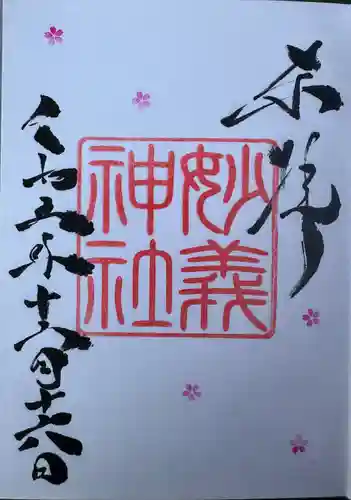 奉拝
妙義
神社
令和五年十二月十六日